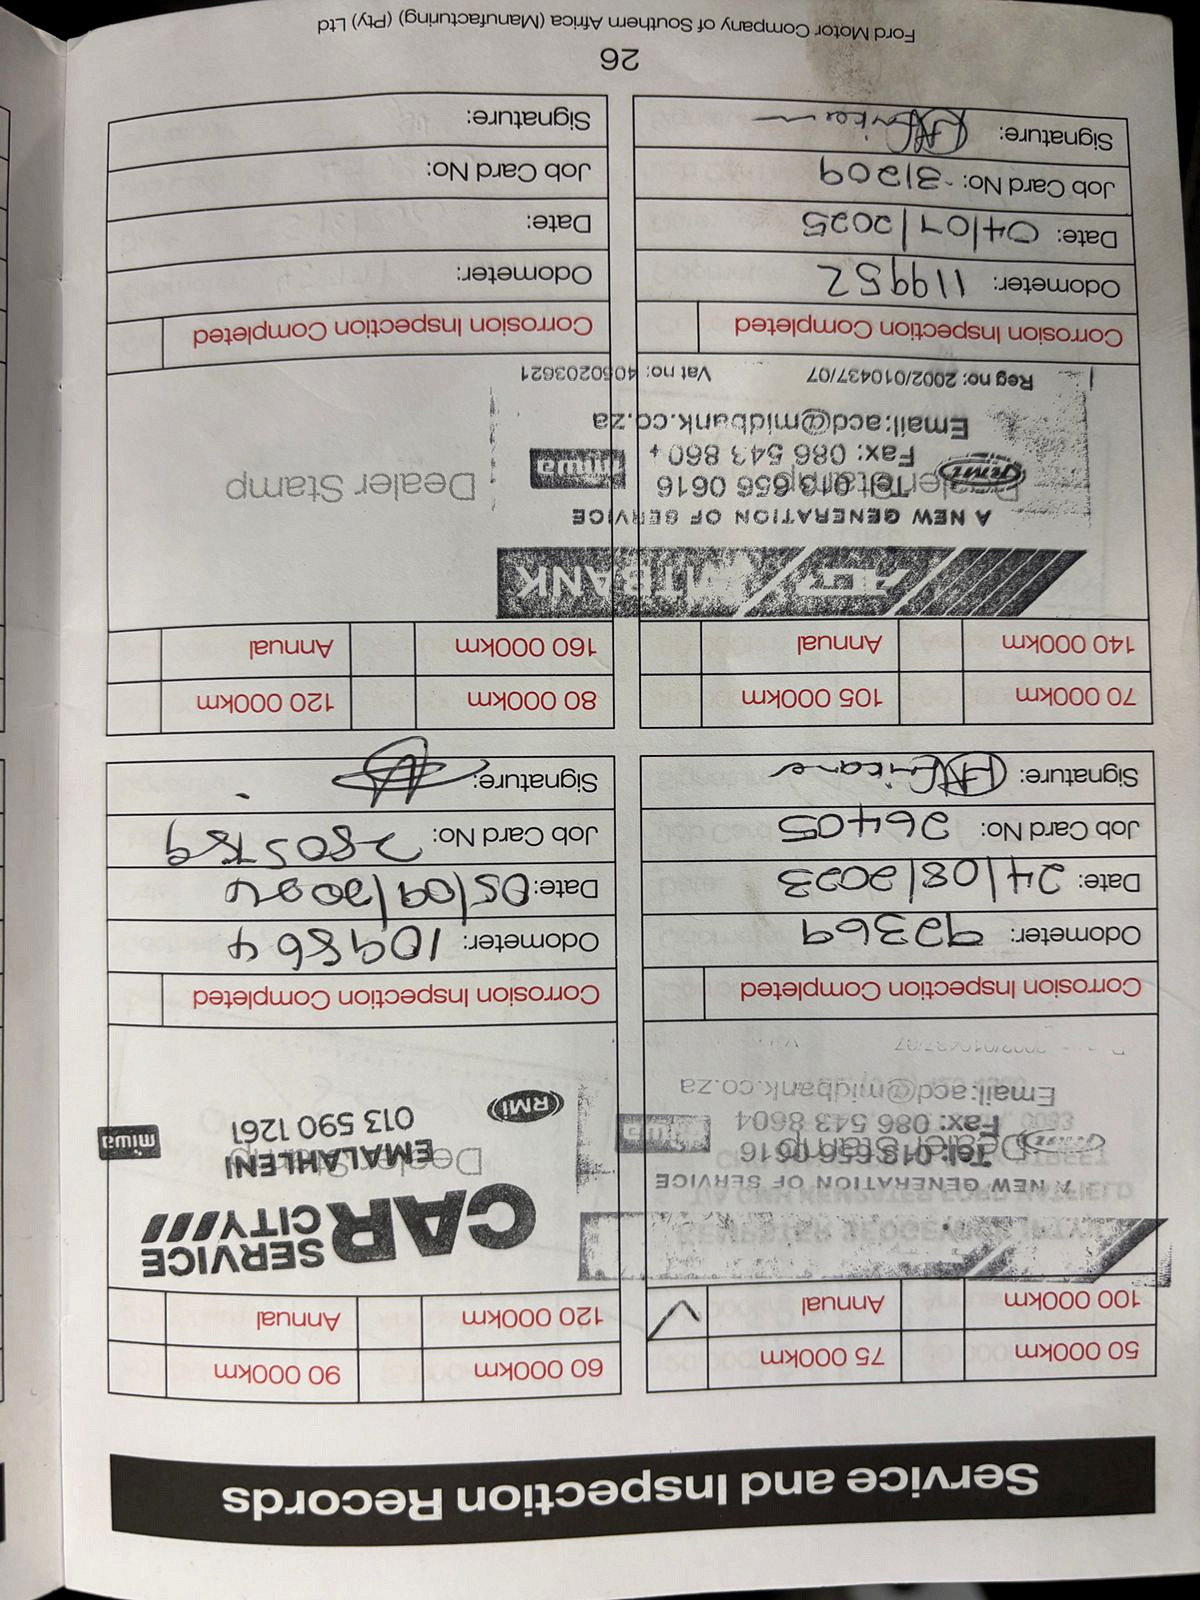 Service and Inspection Records
50 000km 75 000km
100 000km Annual
60 000km 90 000km
120 000km Annual
A NEW GENERATION OF SERVICE
Dealer Stamp
Tel: 013 656 0616
Fax: 086 543 8604
Email:acd@midbank.co.za
miwa
CAR SERVICE CITY
EMALAHLENI
Dealer Stamp
013 590 1261
RMI
miwa
Corrosion Inspection Completed
Odometer: 92369
Date: 24/08/2023
Job Card No: 26405
Signature:
Corrosion Inspection Completed
Odometer: 109864
Date: 05/09/2024
Job Card No:
Signature:
70 000km 105 000km
140 000km Annual
80 000km 120 000km
160 000km Annual
ACD WITBANK
A NEW GENERATION OF SERVICE
Dealer Stamp
Tel: 013 656 0616
Fax: 086 543 8604
Email:acd@midbank.co.za
Reg no: 2002/010437/07 Vat no: 4050203621
rmi
miwa
Dealer Stamp
Corrosion Inspection Completed
Odometer: 119952
Date: 04/07/2025
Job Card No: 31209
Signature:
Corrosion Inspection Completed
Odometer:
Date:
Job Card No:
Signature:
26
Ford Motor Company of Southern Africa (Manufacturing) (Pty) Ltd